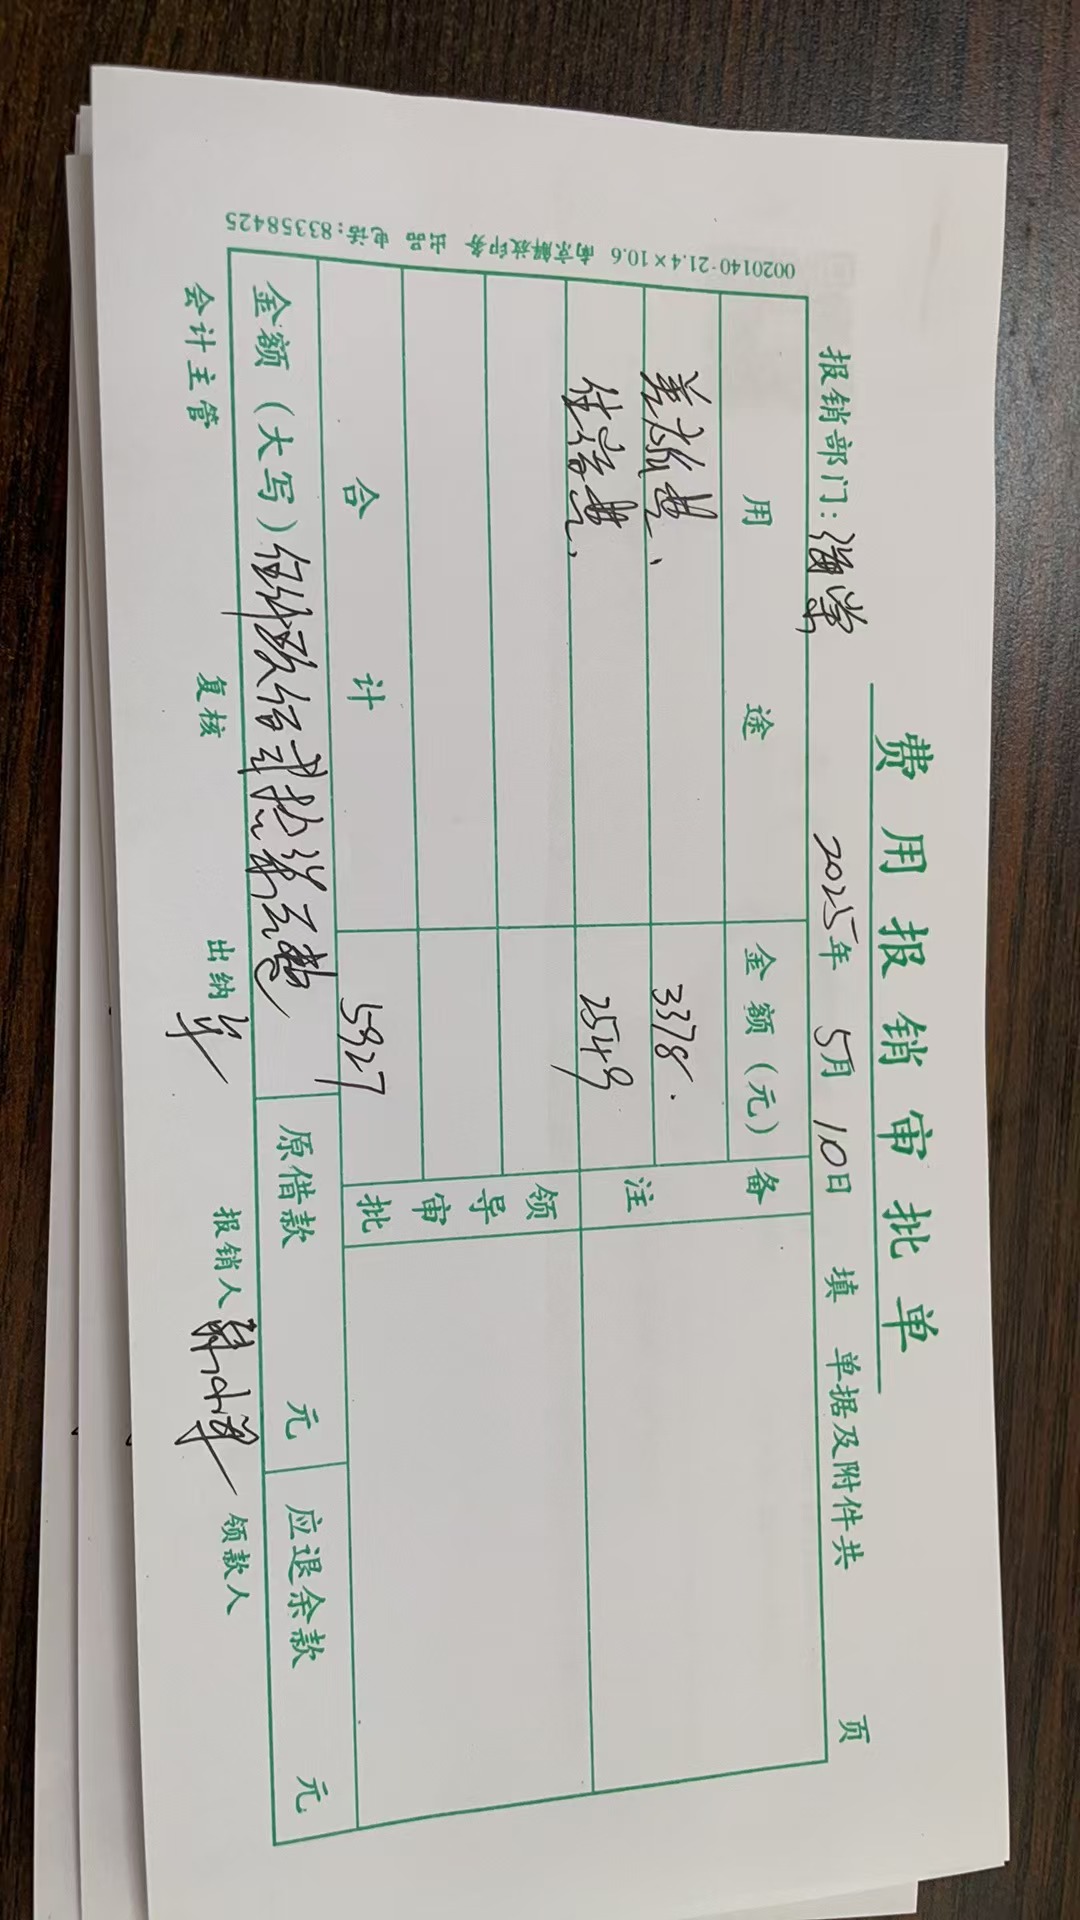 费用报销审批单
报销部门: 海棠 2025年 5月 10日 填 单据及附件共 页
用途 金额(元) 备注
差旅费、 3378.
住宿费、 2549
领导审批
合计 5927
金额(大写) 伍仟玖佰贰拾柒元整 原借款 元 应退余款 元
会计主管 复核 出纳 报销人 领款人
0020140-21.4×10.6 南京解放印务 出品 电话:83358425